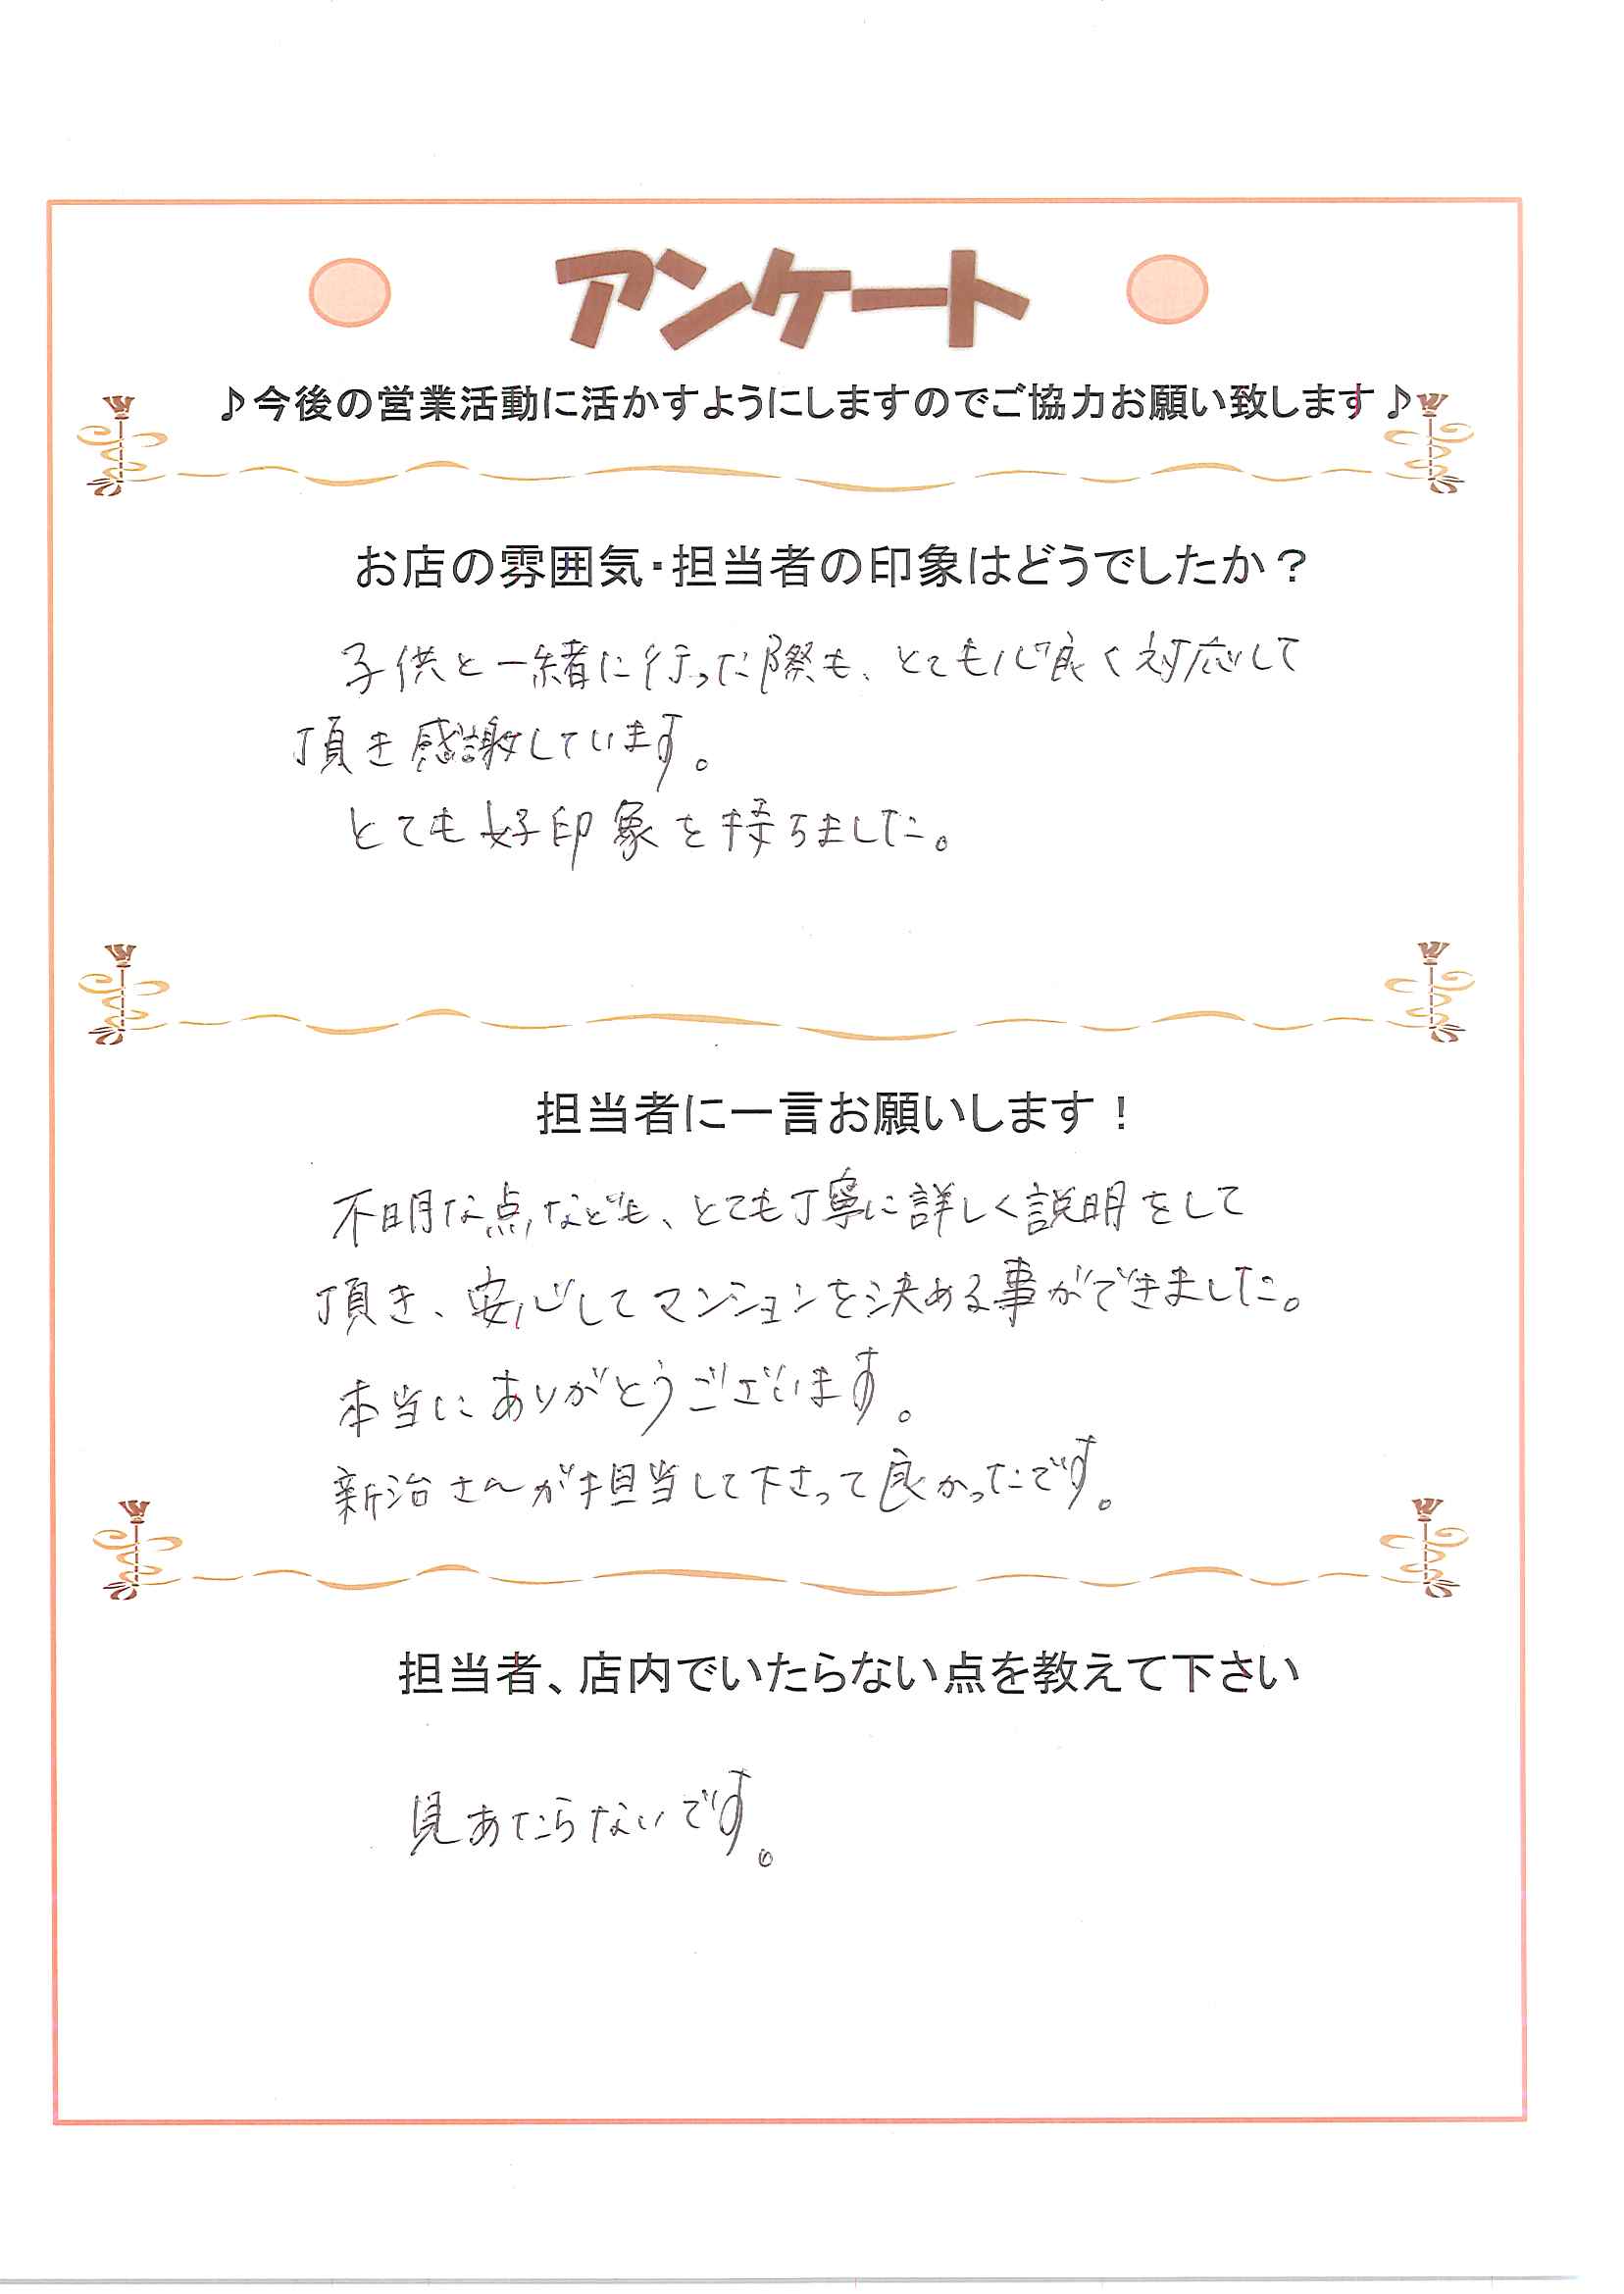 アンケート
♪今後の営業活動に活かすようにしますのでご協力お願い致します♪
お店の雰囲気・担当者の印象はどうでしたか？
子供と一緒に行った際も、とても心良く対応して
頂き感謝しています。
とても好印象を持ちました。
担当者に一言お願いします！
不明な点なども、とても丁寧に詳しく説明をして
頂き、安心してマンションを決める事ができました。
本当にありがとうございます。
新治さんが担当して下さって良かったです。
担当者、店内でいたらない点を教えて下さい
見あたらないです。